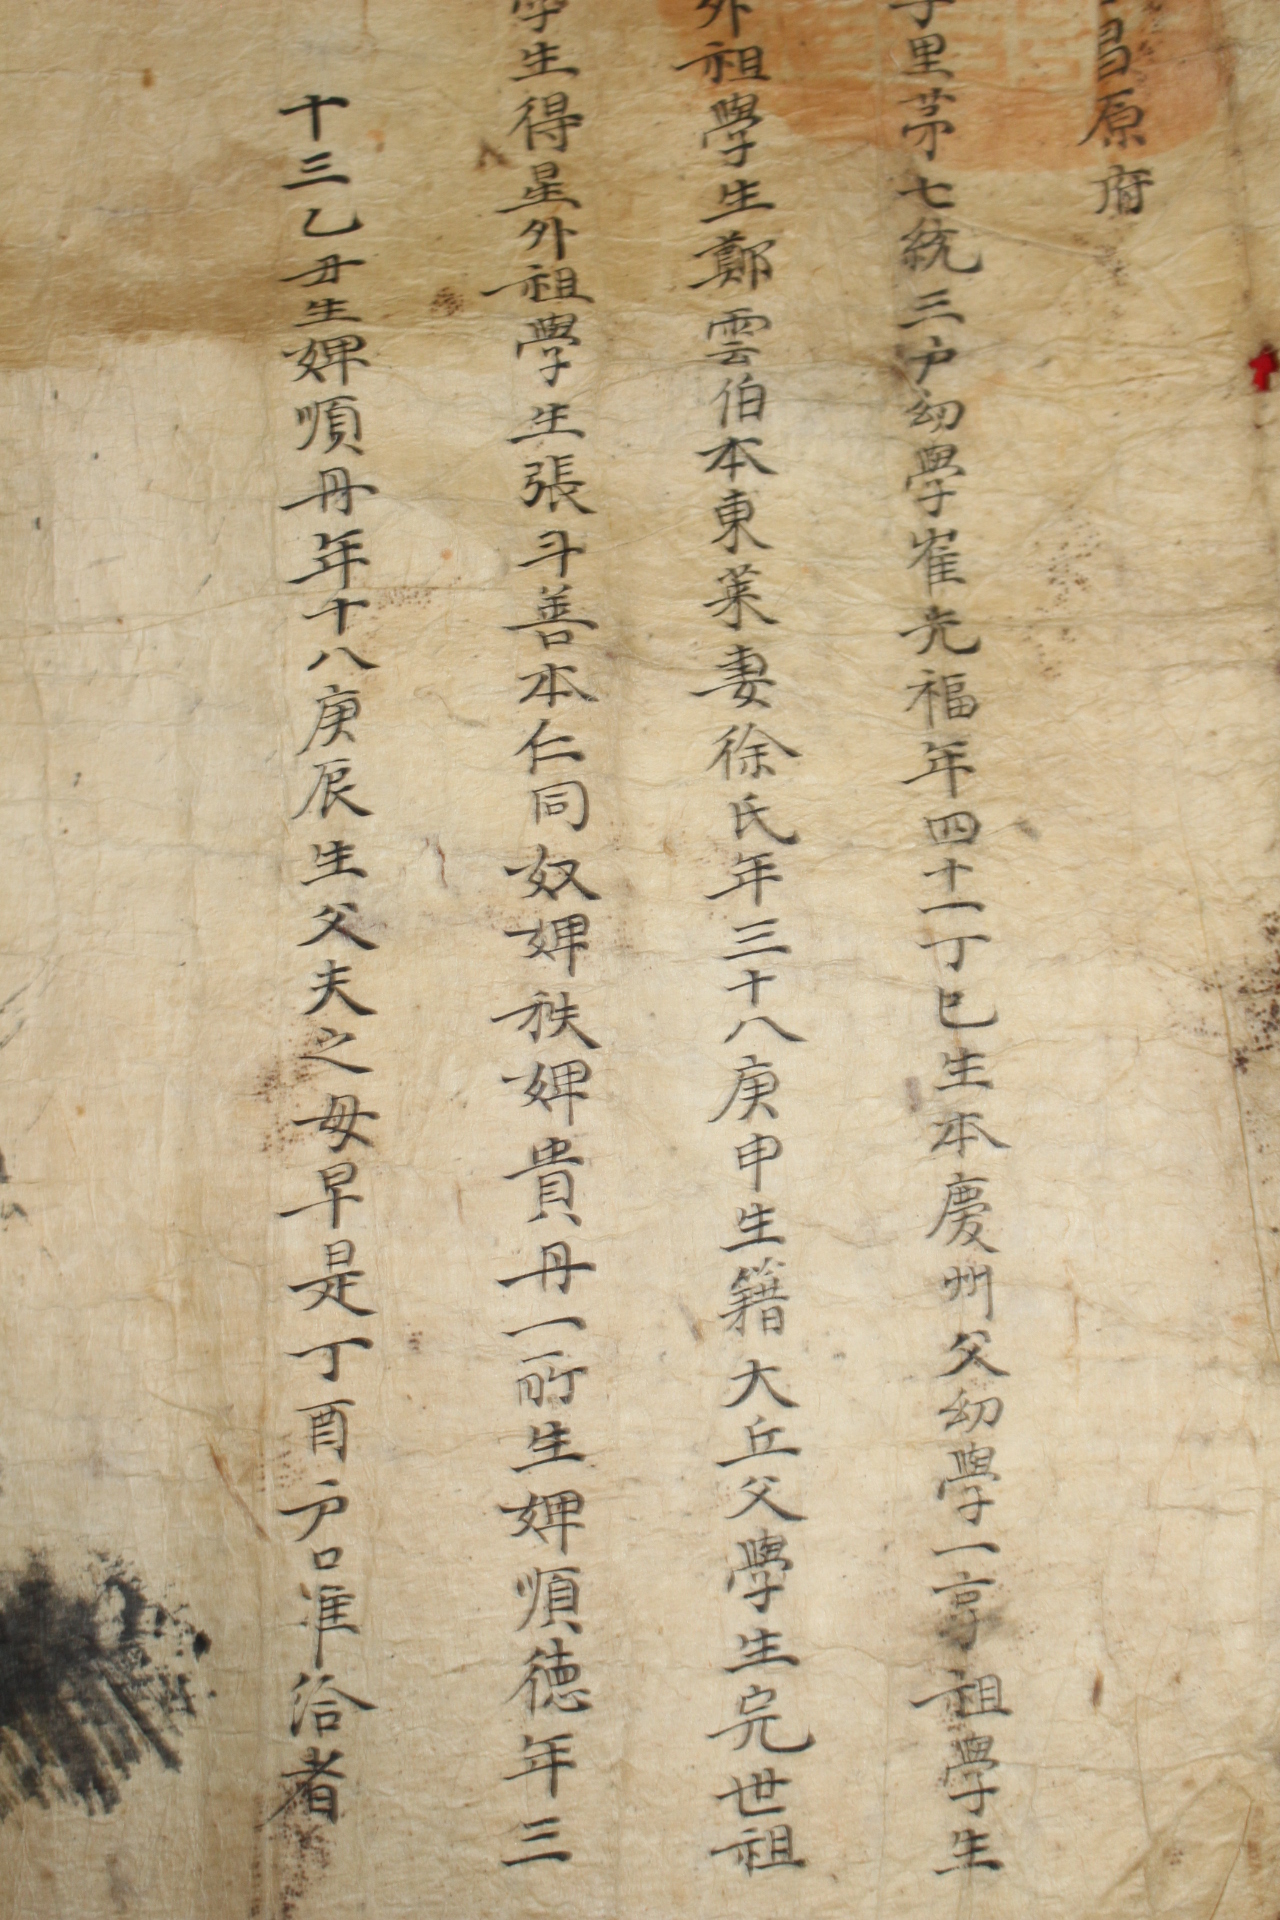 昌原府
里苐七統三户幼學崔光福年四十一丁巳生本慶州父幼學一亨祖學生
外祖學生鄭雲伯本東萊妻徐氏年三十八庚申生籍大丘父學生完世祖
學生得星外祖學生張斗善本仁同奴婢秩婢貴丹一所生婢順德年三
十三乙丑生婢順丹年十八庚辰生父夫之母早是丁酉户口准給者